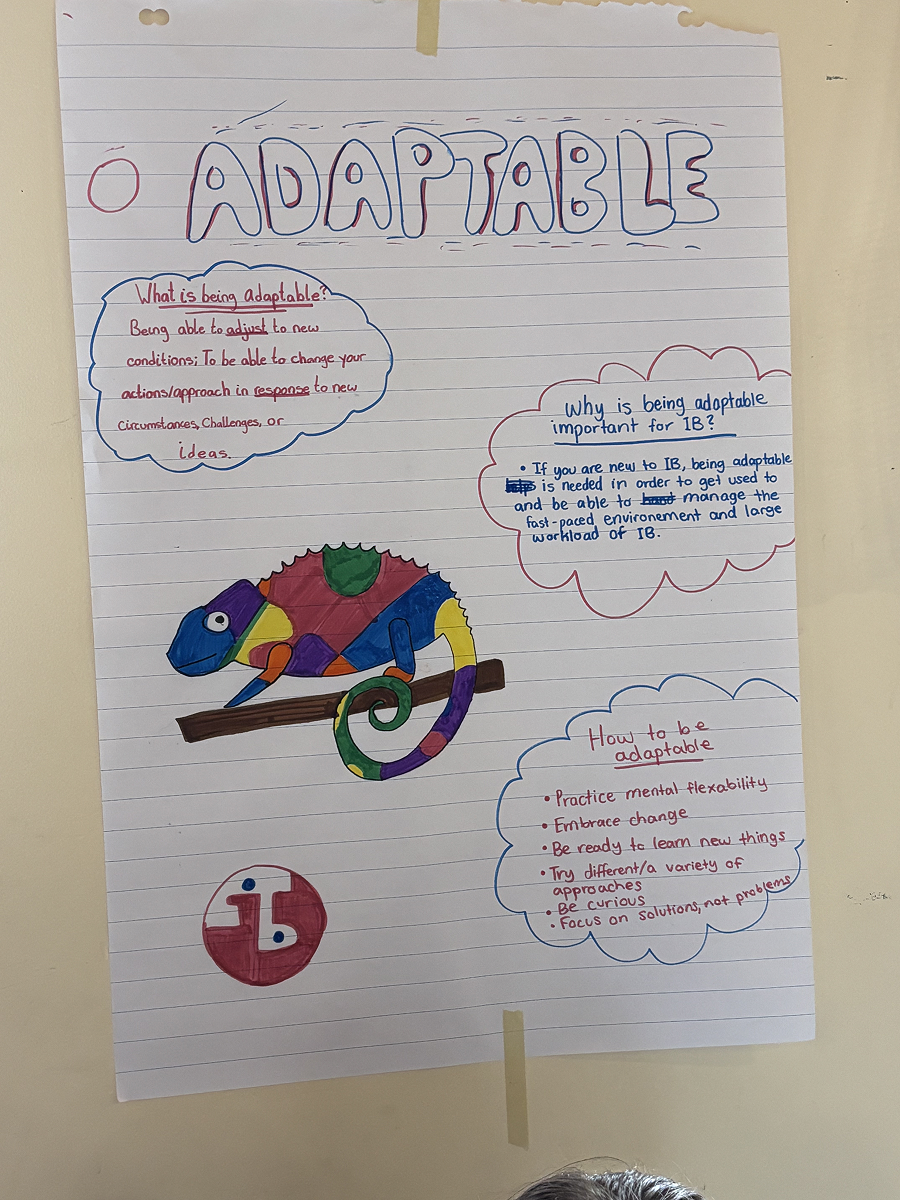 ADAPTABLE
What is being adaptable?
Being able to adjust to new
conditions; To be able to change your
actions/approach in response to new
circumstances, Challenges, or
ideas.
Why is being adaptable
important for IB?
• If you are new to IB, being adaptable
is needed in order to get used to
and be able to manage the
fast-paced environement and large
workload of IB.
How to be
adaptable
• Practice mental flexability
• Embrace change
• Be ready to learn new things
• Try different/a variety of
approaches
• Be curious
• Focus on solutions, not problems
ib